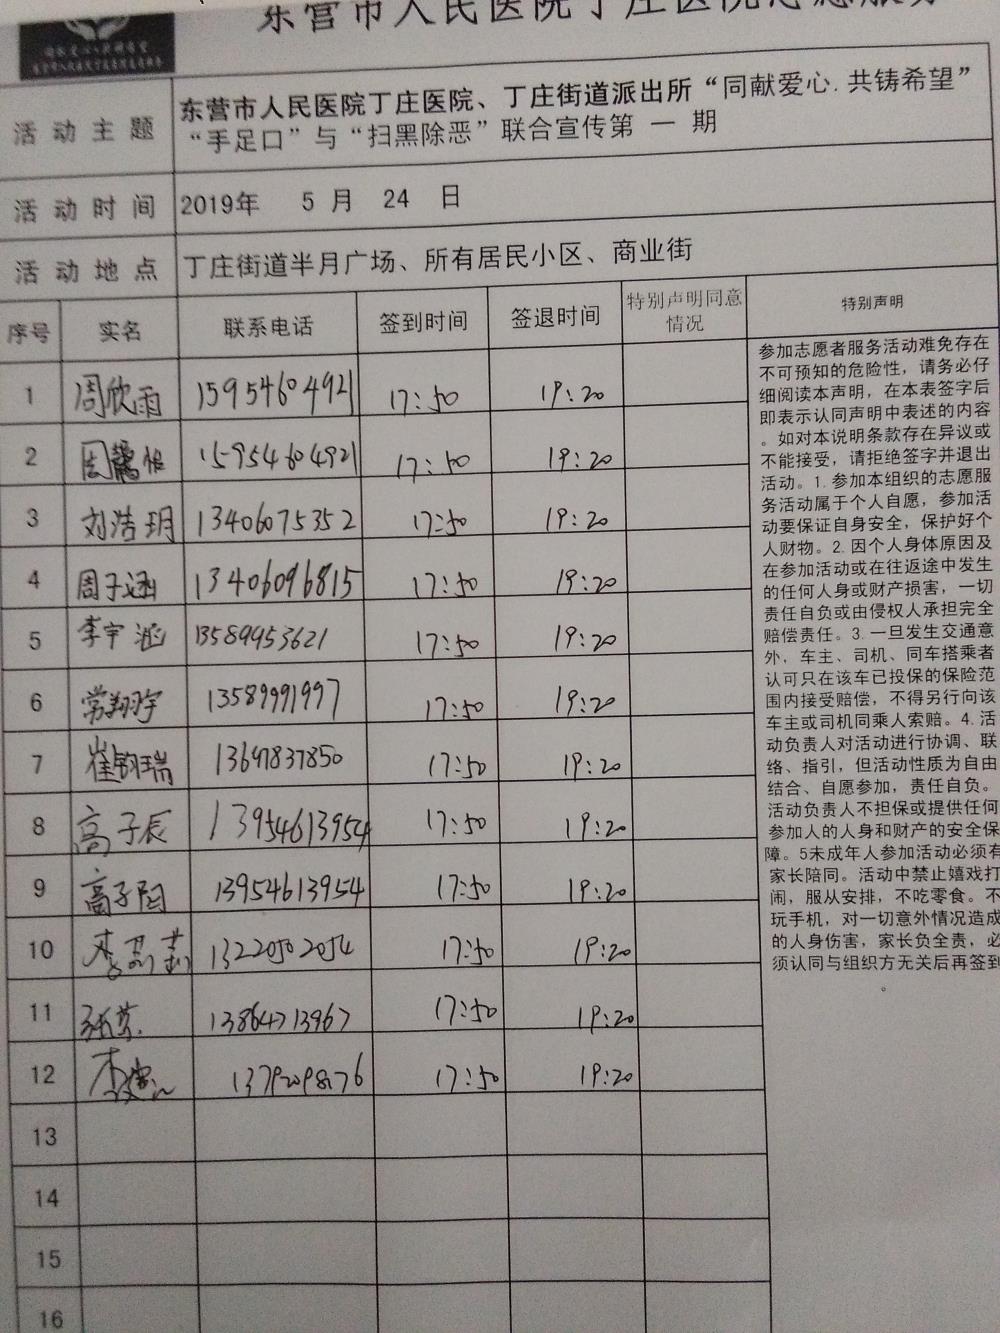 东营市人民医院丁庄医院志愿服务
活动主题
东营市人民医院丁庄医院、丁庄街道派出所“同献爱心.共铸希望”
“手足口”与“扫黑除恶”联合宣传第 一 期
活动时间 2019年 5 月 24 日
活动地点 丁庄街道半月广场、所有居民小区、商业街
序号 实名 联系电话 签到时间 签退时间 特别声明同意
情况
特别声明
1 周欣雨 15954604921 17:50 19:20
2 15954604921 17:50 19:20
3 刘浩玥 13406075352 17:50 19:20
4 周子涵 13406096815 17:50 19:20
5 李宇涵 13589953621 17:50 19:20
6 常翔宇 13589991997 17:50 19:20
7 崔钧瑞 13647837850 17:50 19:20
8 高子辰 13954613954 17:50 19:20
9 高子阳 13954613954 17:50 19:20
10 13220502054 17:50 19:20
11 13864713967 17:50 19:20
12 17:50 19:20
13
14
15
16
参加志愿者服务活动难免存在
不可预知的危险性，请务必仔
细阅读本声明，在本表签字后
即表示认同声明中表述的内容
。如对本说明条款存在异议或
不能接受，请拒绝签字并退出
活动。1.参加本组织的志愿服
务活动属于个人自愿，参加活
动要保证自身安全，保护好个
人财物。2.因个人身体原因及
在参加活动或在往返途中发生
的任何人身或财产损害，一切
责任自负或由侵权人承担完全
赔偿责任。3.一旦发生交通意
外，车主、司机、同车搭乘者
认可只在该车已投保的保险范
围内接受赔偿，不得另行向该
车主或司机同乘人索赔。4.活
动负责人对活动进行协调、联
络、指引，但活动性质为自由
结合、自愿参加，责任自负。
活动负责人不担保或提供任何
参加人的人身和财产的安全保
障。5未成年人参加活动必须有
家长陪同。活动中禁止嬉戏打
闹，服从安排，不吃零食。不
玩手机，对一切意外情况造成
的人身伤害，家长负全责，必
须认同与组织方无关后再签到
。